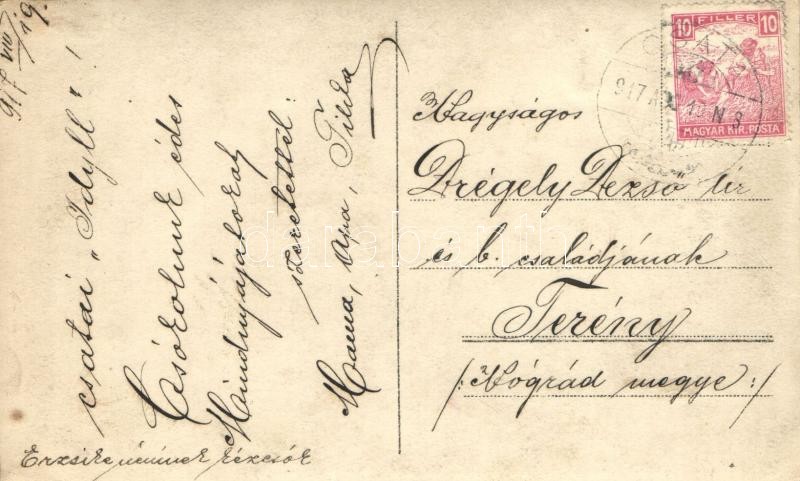 917 VIII/19.
csatai „Idyll"!
Csókolunk édes
Mindnyájatokat
szeretettel:
Mama, Apa, Tilda
Erzsike néninek kézcsók
10 FILLER 10
MAGYAR KIR. POSTA
917
Nagyságos
Drégely Dezső úr
és b. családjának
Terény
/: Nógrád megye :/